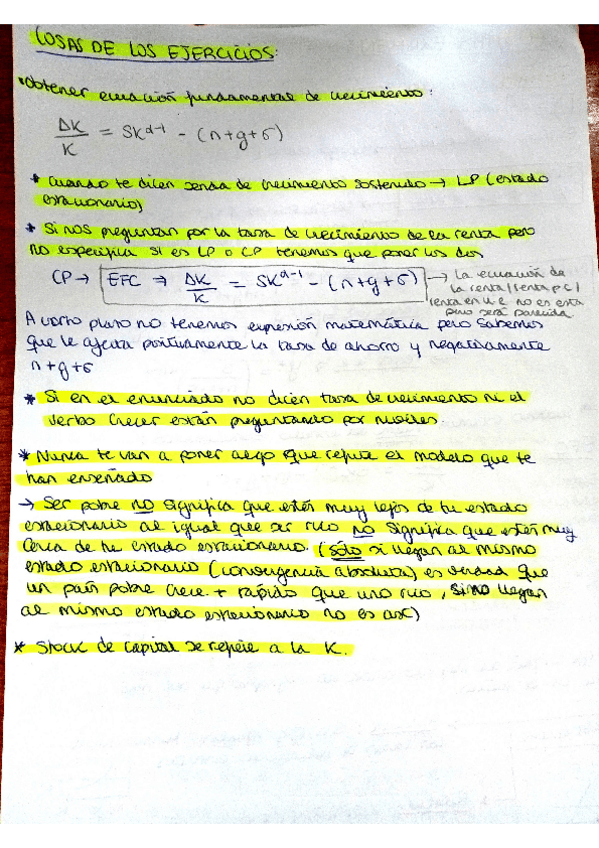 COSAS DE LOS EJERCICIOS:
* Obtener ecuación fundamental de crecimiento:
ΔK/K = SK^α-1 - (n+g+δ)
* Cuando te dicen senda de crecimiento sostenido → LP (estado
estacionario)
* Si nos preguntan por la tasa de crecimiento de la renta pero
no especifica si es LP o CP tenemos que poner los dos
CP → EFC ⇒ ΔK/K = SK^α-1 - (n+g+δ) → La ecuación de
la renta / renta pc /
renta en u.e. no es esta
pero será parecida
A corto plazo no tenemos expresión matemática pero sabemos
que le afecta positivamente la tasa de ahorro y negativamente
n+g+δ
* Si en el enunciado no dicen tasa de crecimiento ni el
verbo crecer están preguntando por niveles.
* Nunca te van a poner algo que refute el modelo que te
han enseñado
→ Ser pobre no significa que estés muy lejos de tu estado
estacionario al igual que ser rico no significa que estés muy
cerca de tu estado estacionario. (sólo si llegan al mismo
estado estacionario (convergencia absoluta) es verdad que
un país pobre crece + rápido que uno rico, si no llegan
al mismo estado estacionario no es así)
* Stock de capital se refiere a la K.